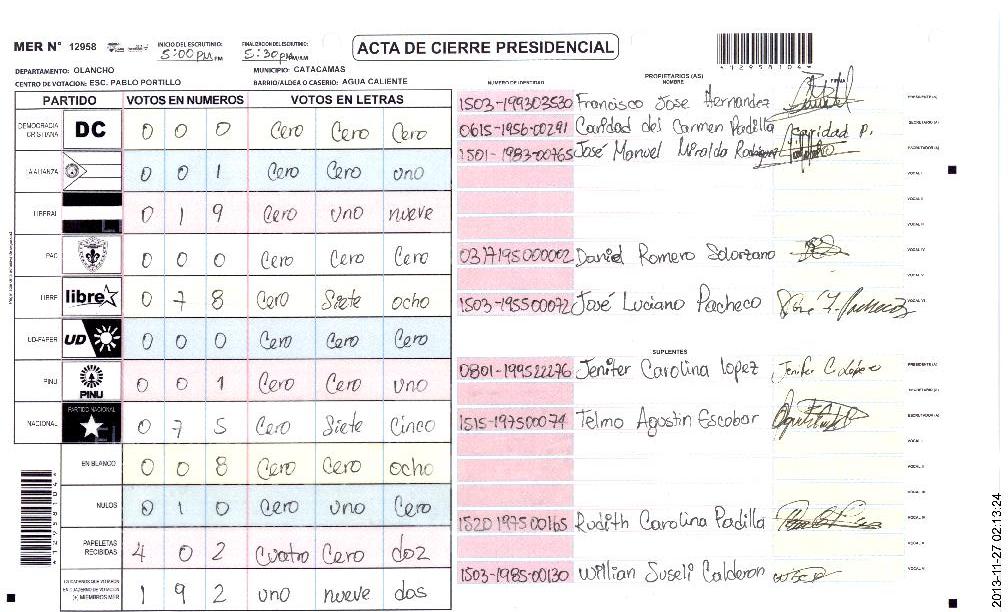 MER N° 12958 INICIO DEL ESCRUTINIO: 5:00 PM PM FINALIZACION DEL ESCRUTINIO: 5:30 PM PM/AM ACTA DE CIERRE PRESIDENCIAL
DEPARTAMENTO: OLANCHO MUNICIPIO: CATACAMAS
CENTRO DE VOTACION: ESC. PABLO PORTILLO BARRIO/ALDEA O CASERIO: AGUA CALIENTE
PARTIDO VOTOS EN NUMEROS VOTOS EN LETRAS
DEMOCRACIA CRISTIANA DC 0 0 0 Cero Cero Cero
LA ALIANZA 0 0 1 Cero Cero uno
LIBERAL L 0 1 9 Cero uno nueve
PAC 0 0 0 Cero Cero Cero
LIBRE libre 0 7 8 Cero Siete ocho
UD-FAPER UD 0 0 0 Cero Cero Cero
PINU PINU 0 0 1 Cero Cero uno
NACIONAL PARTIDO NACIONAL 0 7 5 Cero Siete Cinco
EN BLANCO 0 0 8 Cero Cero ocho
NULOS 0 1 0 Cero uno Cero
PAPELETAS RECIBIDAS 4 0 2 Cuatro Cero doz
CIUDADANOS QUE VOTARON EN CUADERNO DE VOTACION (+) MIEMBROS MER 1 9 2 uno nueve dos
*12958104*
NUMERO DE IDENTIDAD PROPIETARIOS (AS) NOMBRE FIRMA
1503-199303530 Francisco Jose Hernandez PRESIDENTE (A)
0615-1956-00291 Caridad del Carmen Padilla Caridad P. SECRETARIO (A)
1501-1983-00765 José Manuel Miralda Rodriguez ESCRUTADOR (A)
VOCAL I
VOCAL II
VOCAL III
0317195000002 Daniel Romero Solorzano VOCAL IV
VOCAL V
1503-195500072 José Luciano Pacheco José L. Pacheco VOCAL VI
SUPLENTES
0801-199522276 Jenifer Carolina Lopez Jenifer C. López PRESIDENTE (A)
SECRETARIO (A)
1515-197500074 Telmo Agustin Escobar ESCRUTADOR (A)
VOCAL I
VOCAL II
VOCAL III
1520197500165 Rudith Carolina Padilla VOCAL IV
VOCAL V
1503-1985-00130 Willian Suseli Calderon VOCAL VI
2013-11-27 02:13:24